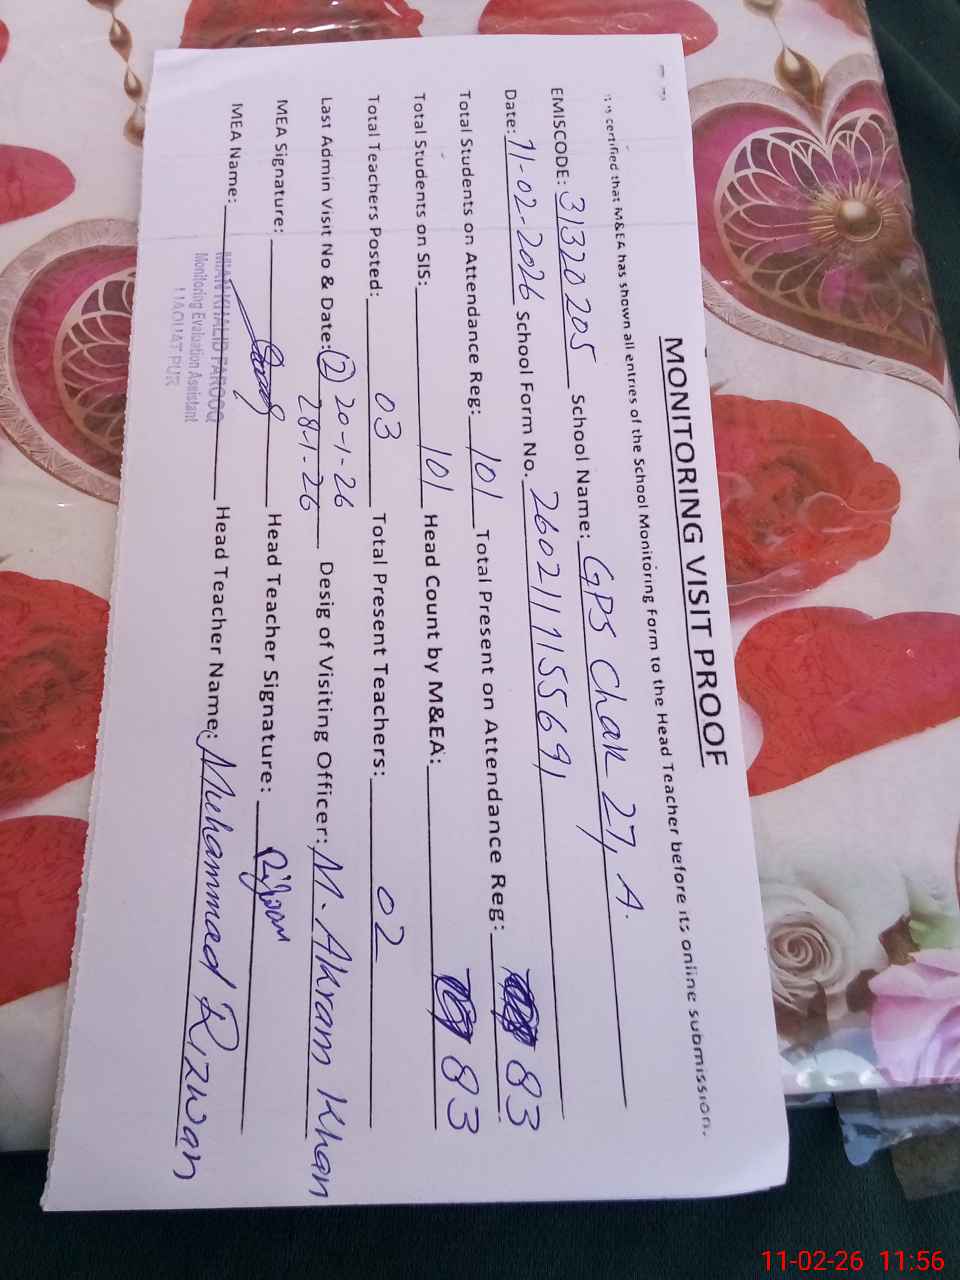 MONITORING VISIT PROOF
It is certified that M&EA has shown all entries of the School Monitoring Form to the Head Teacher before its online submission.
EMISCODE: 31320205 School Name: GPS Chak 27, A.
Date: 11-02-2026 School Form No. 260211155691
Total Students on Attendance Reg: 101 Total Present on Attendance Reg: 83
Total Students on SIS: 101 Head Count by M&EA: 83
Total Teachers Posted: 03 Total Present Teachers: 02
Last Admin Visit No & Date: (2) 20-1-26 Desig of Visiting Officer: M. Akram Khan
28-1-26
MEA Signature: Head Teacher Signature: Rizwan
MEA Name: Head Teacher Name: Muhammad Rizwan
MIAN KHALID FAROOQ
Monitoring Evaluation Assistant
LIAQUAT PUR
11-02-26 11:56